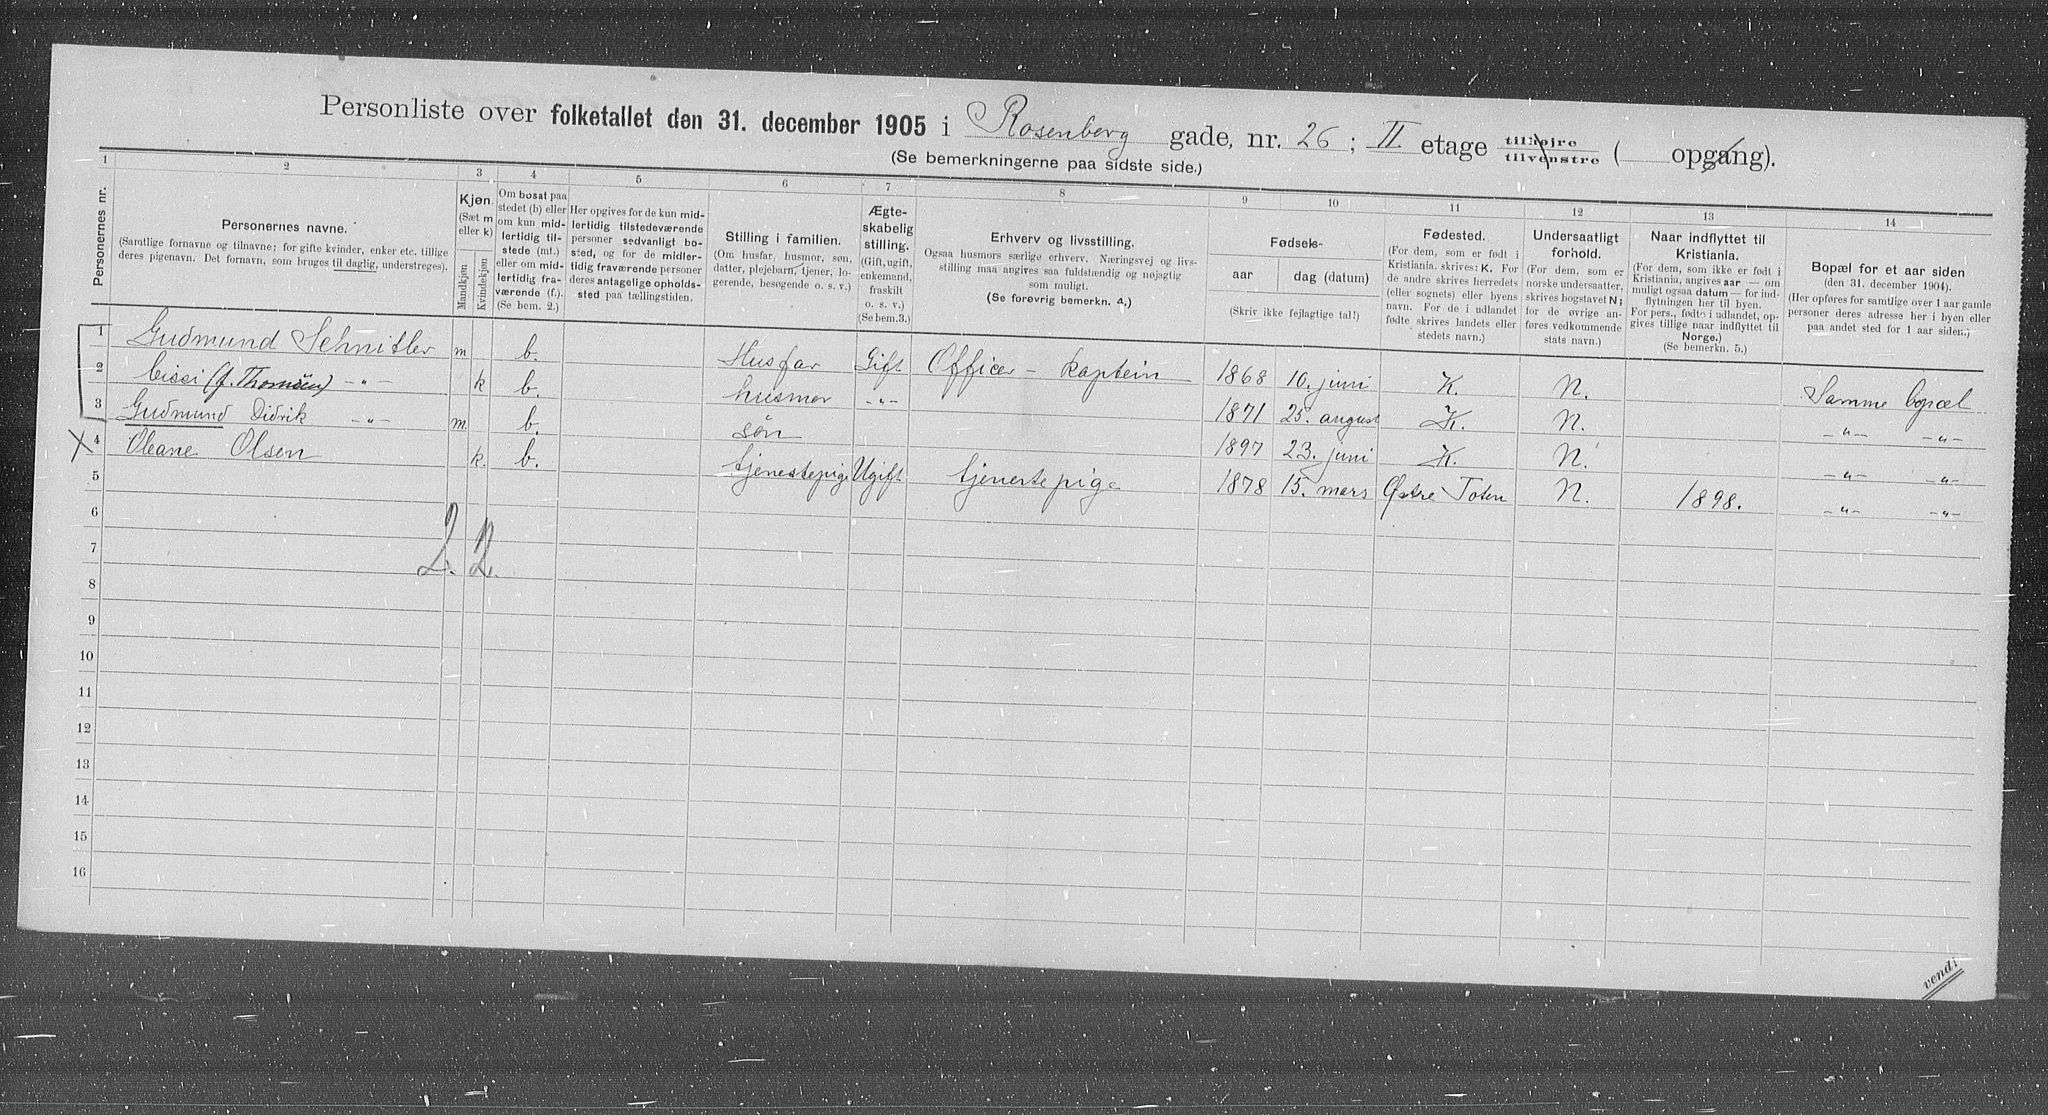 Personliste over folketallet den 31. december 1905 i Rosenberg gade, nr. 26; II etage tilhøire tilvenstre ( opgang).
(Se bemerkningerne paa sidste side.)
1 2 3 4 5 6 7 8 9 10 11 12 13 14
Personernes nr.
Personernes navne.
(Samtlige fornavne og tilnavne; for gifte kvinder, enker etc. tillige
deres pigenavn. Det fornavn, som bruges til daglig, understreges).
Kjøn.
(Sæt m
eller k)
Mandkjøn
Kvindekjøn
Om bosat paa
stedet (b) eller
om kun mid-
lertidig til-
stede (mt.)
eller om mid-
lertidig fra-
værende (f.).
(Se bem. 2.)
Her opgives for de kun mid-
lertidig tilstedeværende
personer sedvanligt bo-
sted, og for de midler-
tidig fraværende personer
deres antagelige opholds-
sted paa tællingstiden.
Stilling i familien.
(Om husfar, husmor, søn,
datter, plejebarn, tjener, lo-
gerende, besøgende o. s. v.)
Ægte-
skabelig
stilling.
(Gift, ugift,
enkemand,
fraskilt
o. s. v.)
(Se bem.3.)
Erhverv og livsstilling.
Ogsaa husmors særlige erhverv. Næringsvej og livs-
stilling maa angives saa fuldstændig og nøjagtig
som muligt.
(Se forøvrig bemerkn. 4,)
Fødsels-
aar dag (datum)
(Skriv ikke fejlagtige tal!)
Fødested.
(For dem, som er født i
Kristiania. skrives: K. For
de andre skrives herredets
(eller sognets) eller byens
navn. For de i udlandet
fødte skrives landets eller
stedets navn.)
Undersaatligt
forhold.
(For dem, som er
norske undersaatter,
skrives bogstavet N;
for de øvrige an-
føres vedkommende
stats navn.)
Naar indflyttet til
Kristiania.
(For dem, som ikke er født i
Kristiania, angives aar — om
muligt ogsaa datum — for ind-
flytningen her til byen.
For pers., fødte i udlandet, op-
gives tillige naar indflyttet til
Norge.)
(Se bemerkn. 5.)
Bopæl for et aar siden
(den 31. december 1904).
(Her opføres for samtlige over 1 aar gamle
personer deres adresse her i byen eller
paa andet sted for 1 aar siden.)
1 Gudmund Schnitler m b. Husfar Gift Officer - kaptein 1868 10. juni K. N. Samme bopæl
2 Cissi (f. Thomsen) -"- k b. husmor -"- 1871 25. august K. N. -"- -"-
3 Gudmund Didrik -"- m. b. søn 1897 23. juni K. N. -"- -"-
4 Oleane Olsen k. b. tjenestepige Ugift tjenestepige 1878 15. mars Østre Toten N. 1898. -"- -"-
5
6
2. 2.
7
8
9
10
11
12
13
14
15
16
vend!